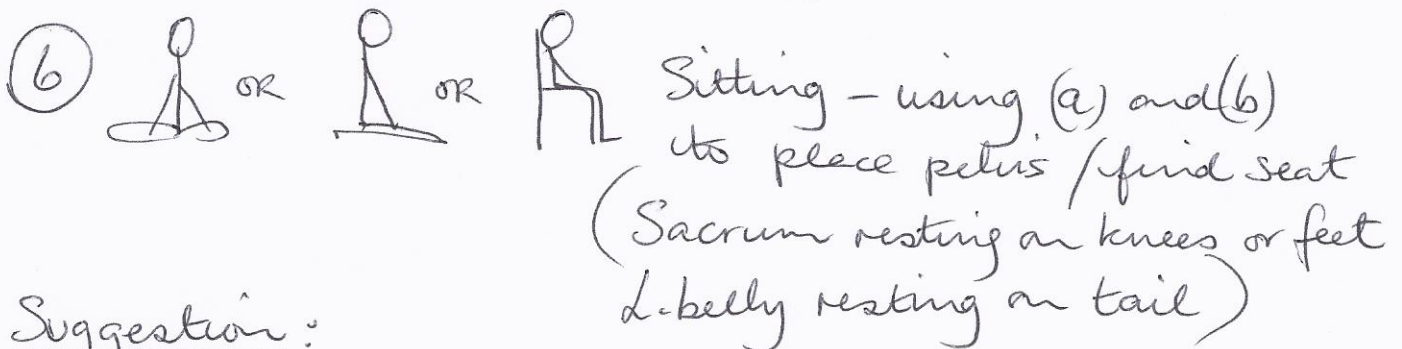 6 OR OR Sitting - using (a) and (b)
to place pelvis / find seat
(Sacrum resting on knees or feet
L. belly resting on tail)
Suggestion: